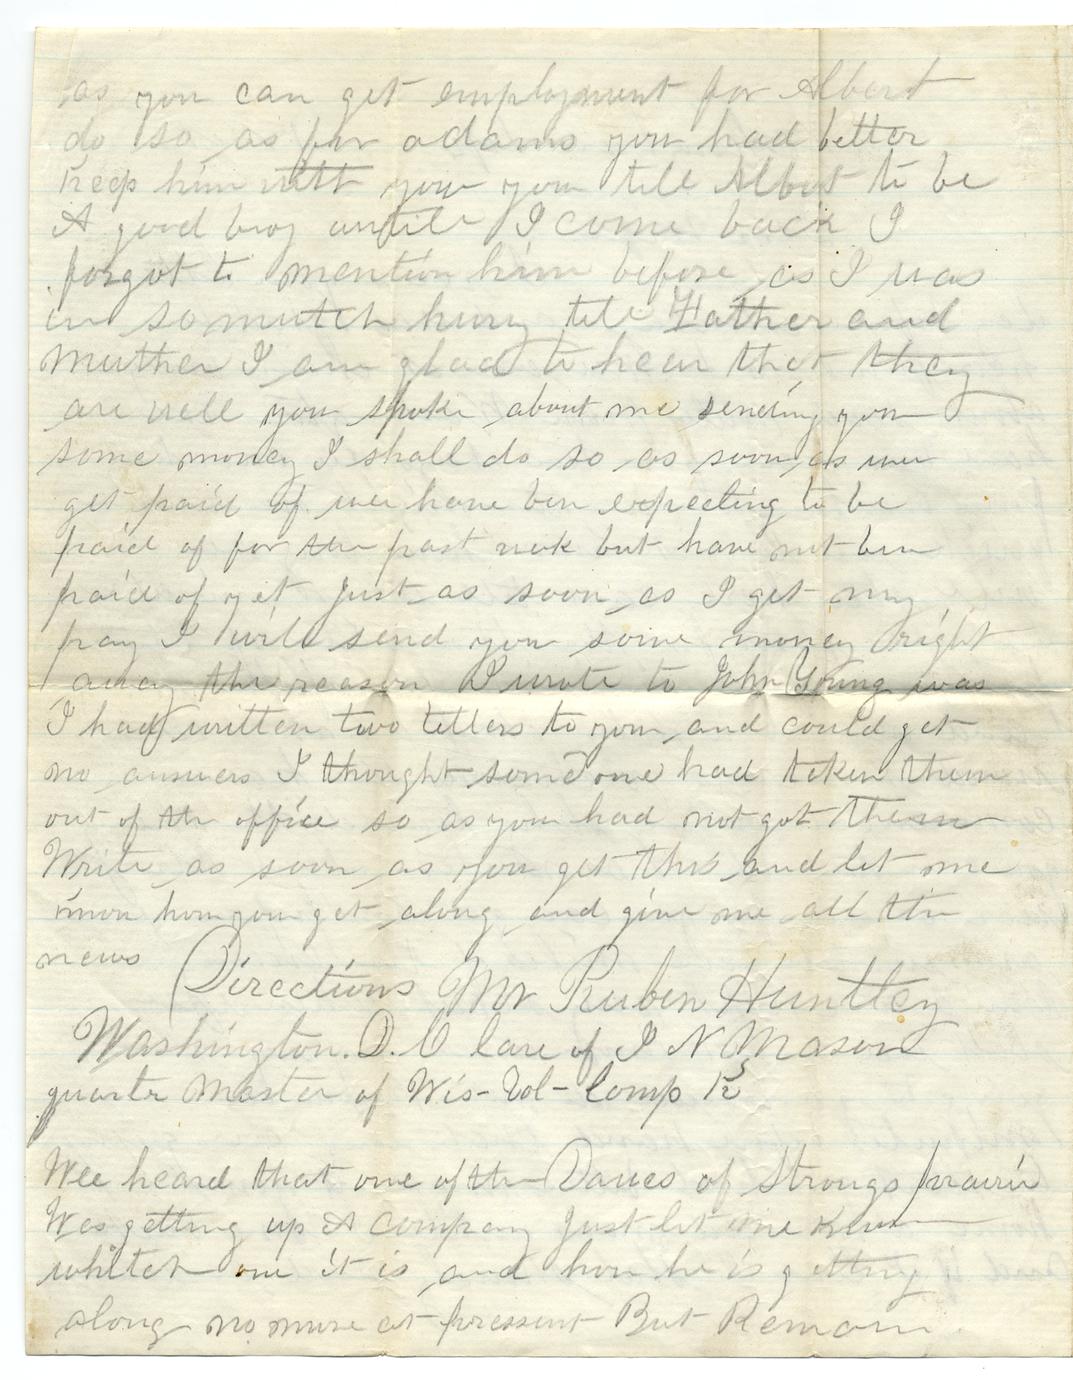 as you can get employment for Albert
do so as for adams you had better
Keep him witt you you tell Albert to be
A good boy untill I come back I
forgot to mention him before as I was
in so mutch hury tell Father and
Muther I am glad to hear that they
are well you spoke about me sending you
some money I shall do so as soon as wee
get paid of wee have ben expecting to be
paid of for the past week but have not ben
paid of yet Just as soon as I get my
pay I will send you some money right
away the reason I wrote to John Young was
I had written two letters to you and could get
no answers I thought some one had token them
out of the office so as you had not got them
Write as soon as you get this and let me
know how you get along and give me all the
news
Directions Mr Ruben Huntley
Washington. D. C Care of I N Mason
quarter Master of Wis- Vol- Comp K
Wee heard that one of the Daves of Strongs prairie
Was getting up A Company Just let me know
whitch one it is and how he is getting
along no more at pressent But Remain